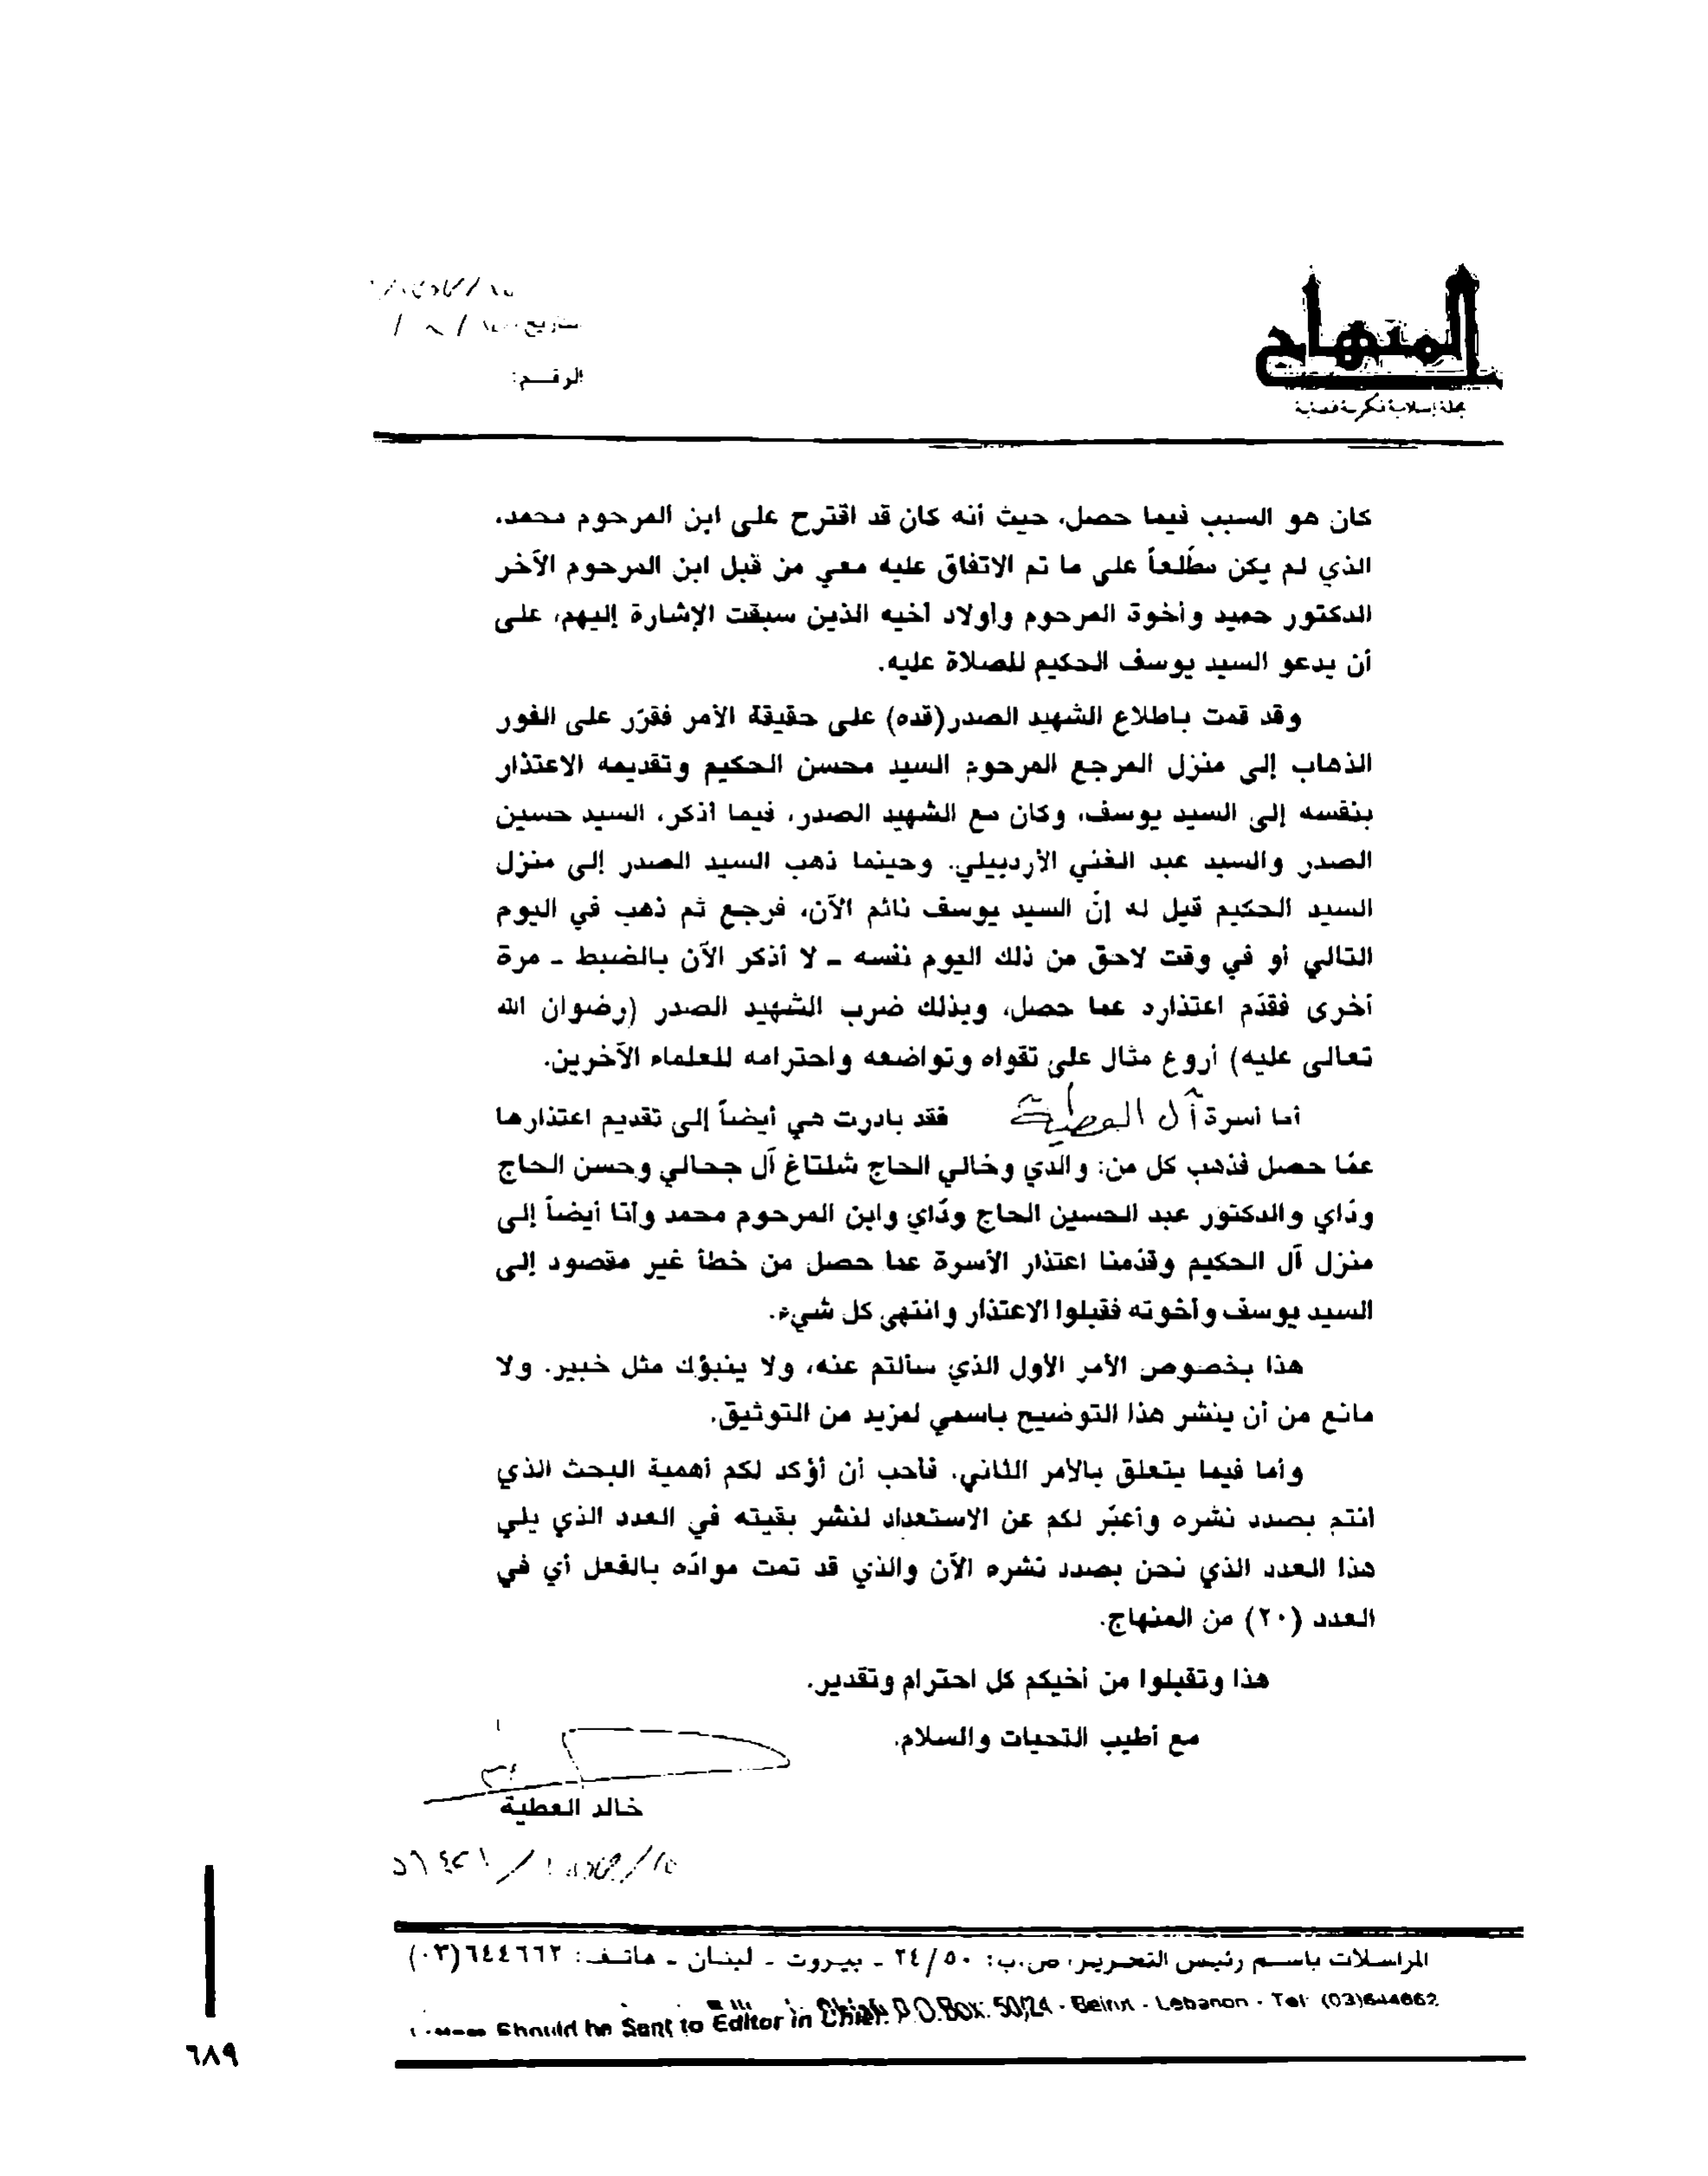 المنهاج
مجلة إسلامية فكرية فصلية
التاريخ
الرقم:
كان هو السبب فيما حصل، حيث أنه كان قد اقترح على ابن المرحوم محمد،
الذي لم يكن مطّلعاً على ما تم الاتفاق عليه معي من قبل ابن المرحوم الآخر
الدكتور حميد وأخوة المرحوم وأولاد أخيه الذين سبقت الإشارة إليهم، على
أن يدعو السيد يوسف الحكيم للصلاة عليه.
وقد قمت باطلاع الشهيد الصدر(قده) على حقيقة الأمر فقرّر على الفور
الذهاب إلى منزل المرجع المرحوم السيد محسن الحكيم وتقديمه الاعتذار
بنفسه إلى السيد يوسف، وكان مع الشهيد الصدر، فيما أذكر، السيد حسين
الصدر والسيد عبد الغني الأردبيلي. وحينما ذهب السيد الصدر إلى منزل
السيد الحكيم قيل له إنّ السيد يوسف نائم الآن، فرجع ثم ذهب في اليوم
التالي أو في وقت لاحق من ذلك اليوم نفسه ـ لا أذكر الآن بالضبط ـ مرة
أخرى فقدّم اعتذاره عما حصل، وبذلك ضرب الشهيد الصدر (رضوان الله
تعالى عليه) أروع مثال على تقواه وتواضعه واحترامه للعلماء الآخرين.
أما أسرة آل العطية فقد بادرت هي أيضاً إلى تقديم اعتذارها
عمّا حصل فذهب كل من: والدي وخالي الحاج شلتاغ آل جحالي وحسن الحاج
ودّاي والدكتور عبد الحسين الحاج ودّاي وابن المرحوم محمد وأنا أيضاً إلى
منزل آل الحكيم وقدّمنا اعتذار الأسرة عما حصل من خطأ غير مقصود إلى
السيد يوسف وأخوته فقبلوا الاعتذار وانتهى كل شيء.
هذا بخصوص الأمر الأول الذي سألتم عنه، ولا ينبؤك مثل خبير. ولا
مانع من أن ينشر هذا التوضيح باسمي لمزيد من التوثيق.
وأما فيما يتعلق بالأمر الثاني، فأحب أن أؤكد لكم أهمية البحث الذي
أنتم بصدد نشره وأعبّر لكم عن الاستعداد لنشر بقيته في العدد الذي يلي
هذا العدد الذي نحن بصدد نشره الآن والذي قد تمت موادّه بالفعل أي في
العدد (٢٠) من المنهاج.
هذا وتقبلوا من أخيكم كل احترام وتقدير.
مع أطيب التحيات والسلام.
خالد العطية
المراسلات باسم رئيس التحرير، ص.ب: ٢٤/٥٠ ـ بيروت ـ لبنان ـ هاتف: ٦٤٤٦٦٢(٠٣)
Should be Sent to Editor in Chief: P.O.Box: 50/24 - Beirut - Lebanon - Tel: (03)644662
٦٨٩